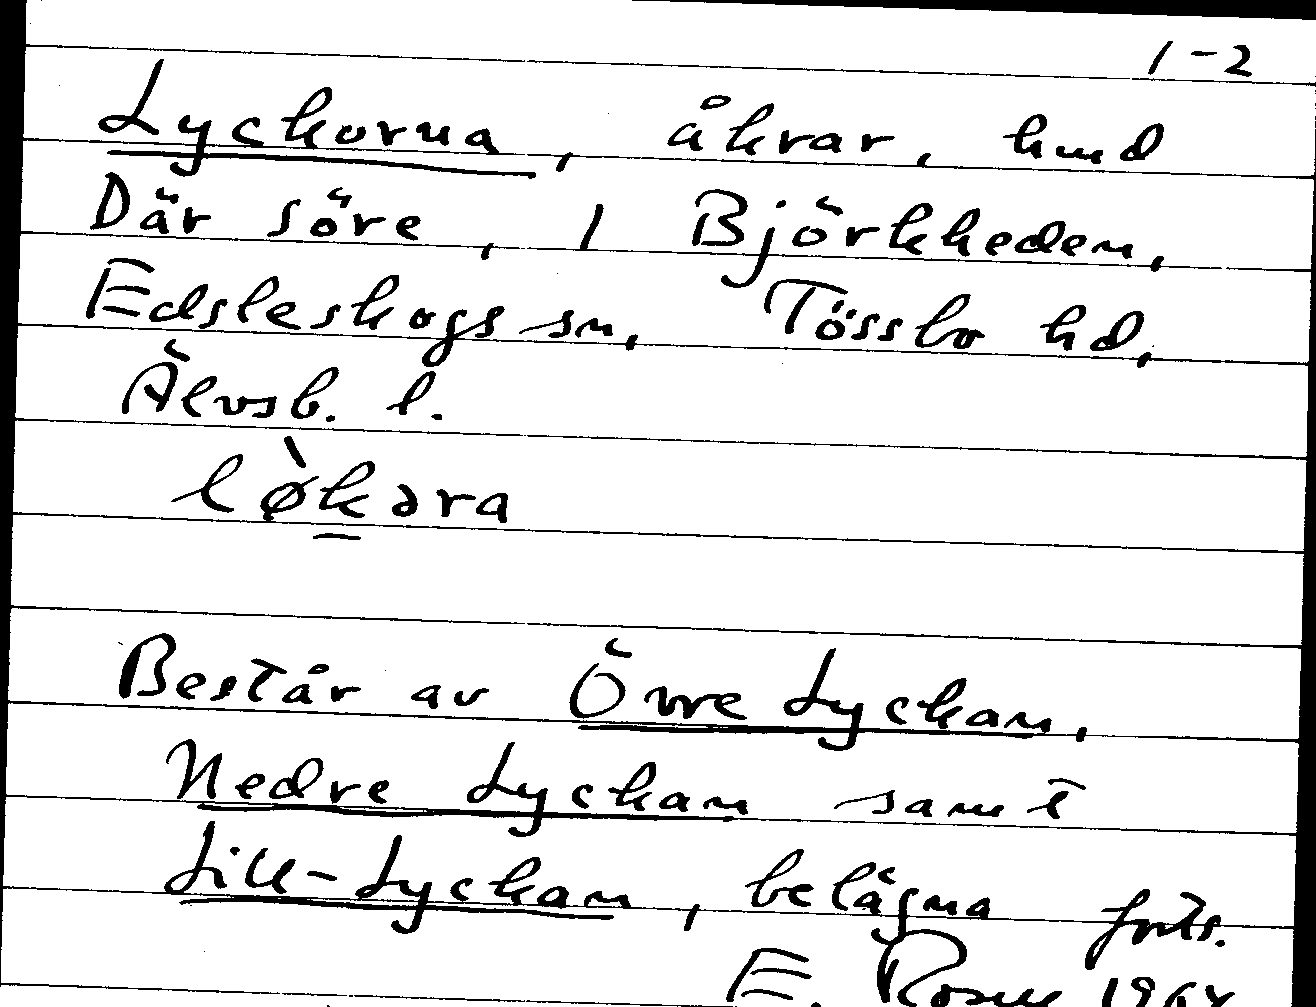 1-2
Lyckorna, åkrar, hmd
Där söre, 1 Björkheden,
Edsleskogs sn, Tössbo hd,
Älvsb. l.
lø̀kəra
Består av Övre Lyckan,
Nedre Lyckan samt
Lill-Lyckan, belägna forts.
E.